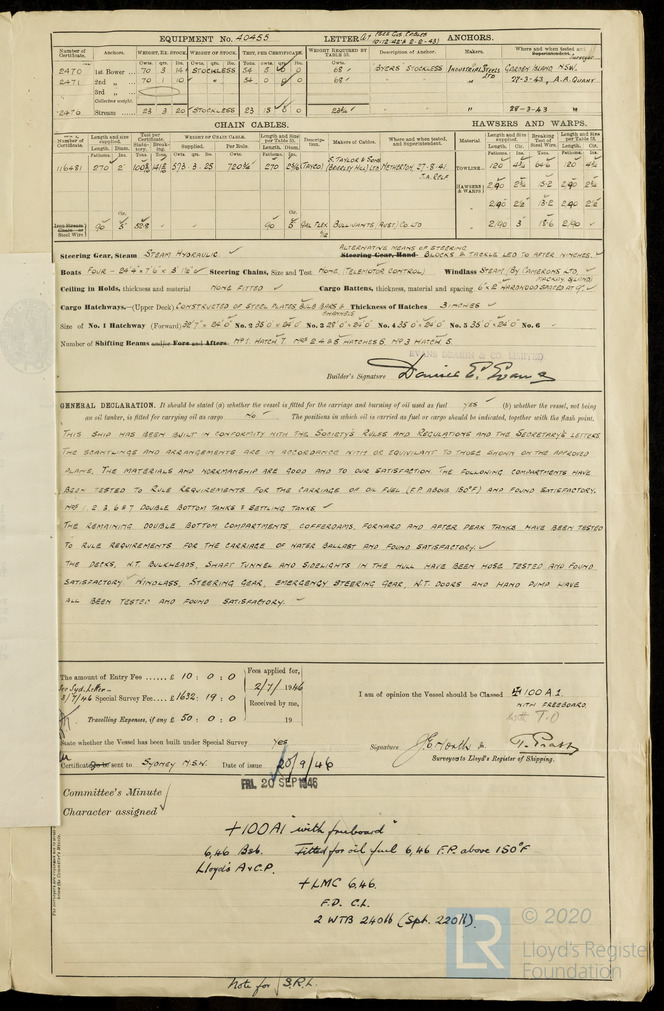 EQUIPMENT No. 40455 LETTER ANCHORS.
Number of Certificate. Anchors. WEIGHT, EX. STOCK. WEIGHT OF STOCK. TEST, PER CERTIFICATE. WEIGHT REQUIRED BY TABLE 53. Description of Anchor. Makers. Where and when tested and Superintendent.
Cwts. qrs. lbs. Cwts.
2470 1st Bower 70 3 14 STOCKLESS 54 5 0 68 BYERS STOCKLESS INDUSTRIAL STEELS LTD GARDEN ISLAND N.S.W.
2471 2nd 70 1 10 54 0 0 68 27-3-43, A.A. QUANT
3rd
Collective weight.
2476 Stream 23 3 20 STOCKLESS 23 13 0 23¾ 28-3-43
CHAIN CABLES. HAWSERS AND WARPS.
Number of Certificate. Length and size supplied. Test per Certificate. WEIGHT OF CHAIN CABLE. Length and Size per Table 53. Description. Makers of Cables. Where and when tested, and Superintendent. Material Length and Size supplied. Breaking Test of Steel Wire. Length and Size per Table 53.
Length. Diam. Statutory. Breaking. Supplied. Per Rule. Length. Diam. Length. Cir. Length. Cir.
Fathoms. Ins. Tons. Cwts. qrs. lbs. Cwts. Fathoms. Ins. Fathoms. Ins. Tons. Fathoms. Ins.
116481 270 2 573 3 25 720¾ 270 (TAYCO) S. TAYLOR & SONS (BRIERLEY HILL) LTD NETHERTON 27-8-41 TOWLINE 120 4¾ 64.6 120 4¾
J.A. RELF
HAWSERS & WARPS 2/90 2¾ 15.2 2/90 2¾
2/90 2½ 13.2 2/90 2½
Iron Stream Chain or Steel Wire 90 5 52.8 90 5 BULLIVANTS (AUST) CO LTD 2/90 3 18.6 2/90
Steering Gear, Steam STEAM HYDRAULIC. ALTERNATIVE MEANS OF STEERING
Steering Gear, Hand BLOCKS & TACKLE LED TO AFTER WINCHES.
Boats FOUR - 24'4" x 7'6" x 3'1½" Steering Chains, Size and Test NONE. (TELEMOTOR CONTROL) Windlass STEAM (BY CAMERONS LTD, MACKAY ISLAND)
Ceiling in Holds, thickness and material NONE FITTED Cargo Battens, thickness, material and spacing 6"x2" HARDWOOD SPACED AT 9"
Cargo Hatchways.—(Upper Deck) CONSTRUCTED OF STEEL PLATES, BULB BARS & CHANNELS Thickness of Hatches 3 INCHES
Size of No. 1 Hatchway (Forward) 32'7" x 24'0" No. 2 35'0" x 24'0" No. 3 28'0" x 24'0" No. 4 35'0" x 24'0" No. 5 35'0" x 24'0" No. 6
Number of Shifting Beams and/or Fore and Afters. No 1. HATCH 7. Nos 2 4 & 5 HATCHES 8. No 3 HATCH 5.
EVANS DEAKIN & CO. LIMITED
Builder's Signature Daniel E. Evans
GENERAL DECLARATION. It should be stated (a) whether the vessel is fitted for the carriage and burning of oil used as fuel YES (b) whether the vessel, not being
an oil tanker, is fitted for carrying oil as cargo NO The positions in which oil is carried as fuel or cargo should be indicated, together with the flash point.
THIS SHIP HAS BEEN BUILT IN CONFORMITY WITH THE SOCIETY'S RULES AND REGULATIONS AND THE SECRETARY'S LETTERS
THE SCANTLINGS AND ARRANGEMENTS ARE IN ACCORDANCE WITH OR EQUIVALENT TO THOSE SHOWN ON THE APPROVED
PLANS. THE MATERIALS AND WORKMANSHIP ARE GOOD AND TO OUR SATISFACTION. THE FOLLOWING COMPARTMENTS HAVE
BEEN TESTED TO RULE REQUIREMENTS FOR THE CARRIAGE OF OIL FUEL (F.P. ABOVE 150°F) AND FOUND SATISFACTORY.
Nos 1, 2, 3, 6 & 7 DOUBLE BOTTOM TANKS & SETTLING TANKS.
THE REMAINING DOUBLE BOTTOM COMPARTMENTS, COFFERDAMS, FORWARD AND AFTER PEAK TANKS HAVE BEEN TESTED
TO RULE REQUIREMENTS FOR THE CARRIAGE OF WATER BALLAST AND FOUND SATISFACTORY.
THE DECKS, W.T. BULKHEADS, SHAFT TUNNEL AND SIDELIGHTS IN THE HULL HAVE BEEN HOSE TESTED AND FOUND
SATISFACTORY. WINDLASS, STEERING GEAR, EMERGENCY STEERING GEAR, W.T. DOORS AND HAND PUMP HAVE
ALL BEEN TESTED AND FOUND SATISFACTORY.
The amount of Entry Fee £ 10 : 0 : 0 Fees applied for,
See Syd. Letter 3/7/46 Special Survey Fee £1632 : 19 : 0 2/7/1946
Received by me,
Travelling Expenses, if any £ 50 : 0 : 0 19
I am of opinion the Vessel should be Classed +100A1.
WITH FREEBOARD
State whether the Vessel has been built under Special Survey Yes
Signature
Surveyors to Lloyd's Register of Shipping.
Certificate to be sent to SYDNEY N.S.W. Date of issue 20/9/46
FRI. 20 SEP 1946
Committee's Minute
Character assigned
+100A1 "with freeboard"
6,46 Bsb. Fitted for oil fuel 6,46 F.P. above 150°F
Lloyd's A & C.P.
+LMC 6,46.
F.D. C.L.
2 WTB 240lb (Spt. 220lb).
Note for S.R.L.
LR © 2020
Lloyd's Register
Foundation